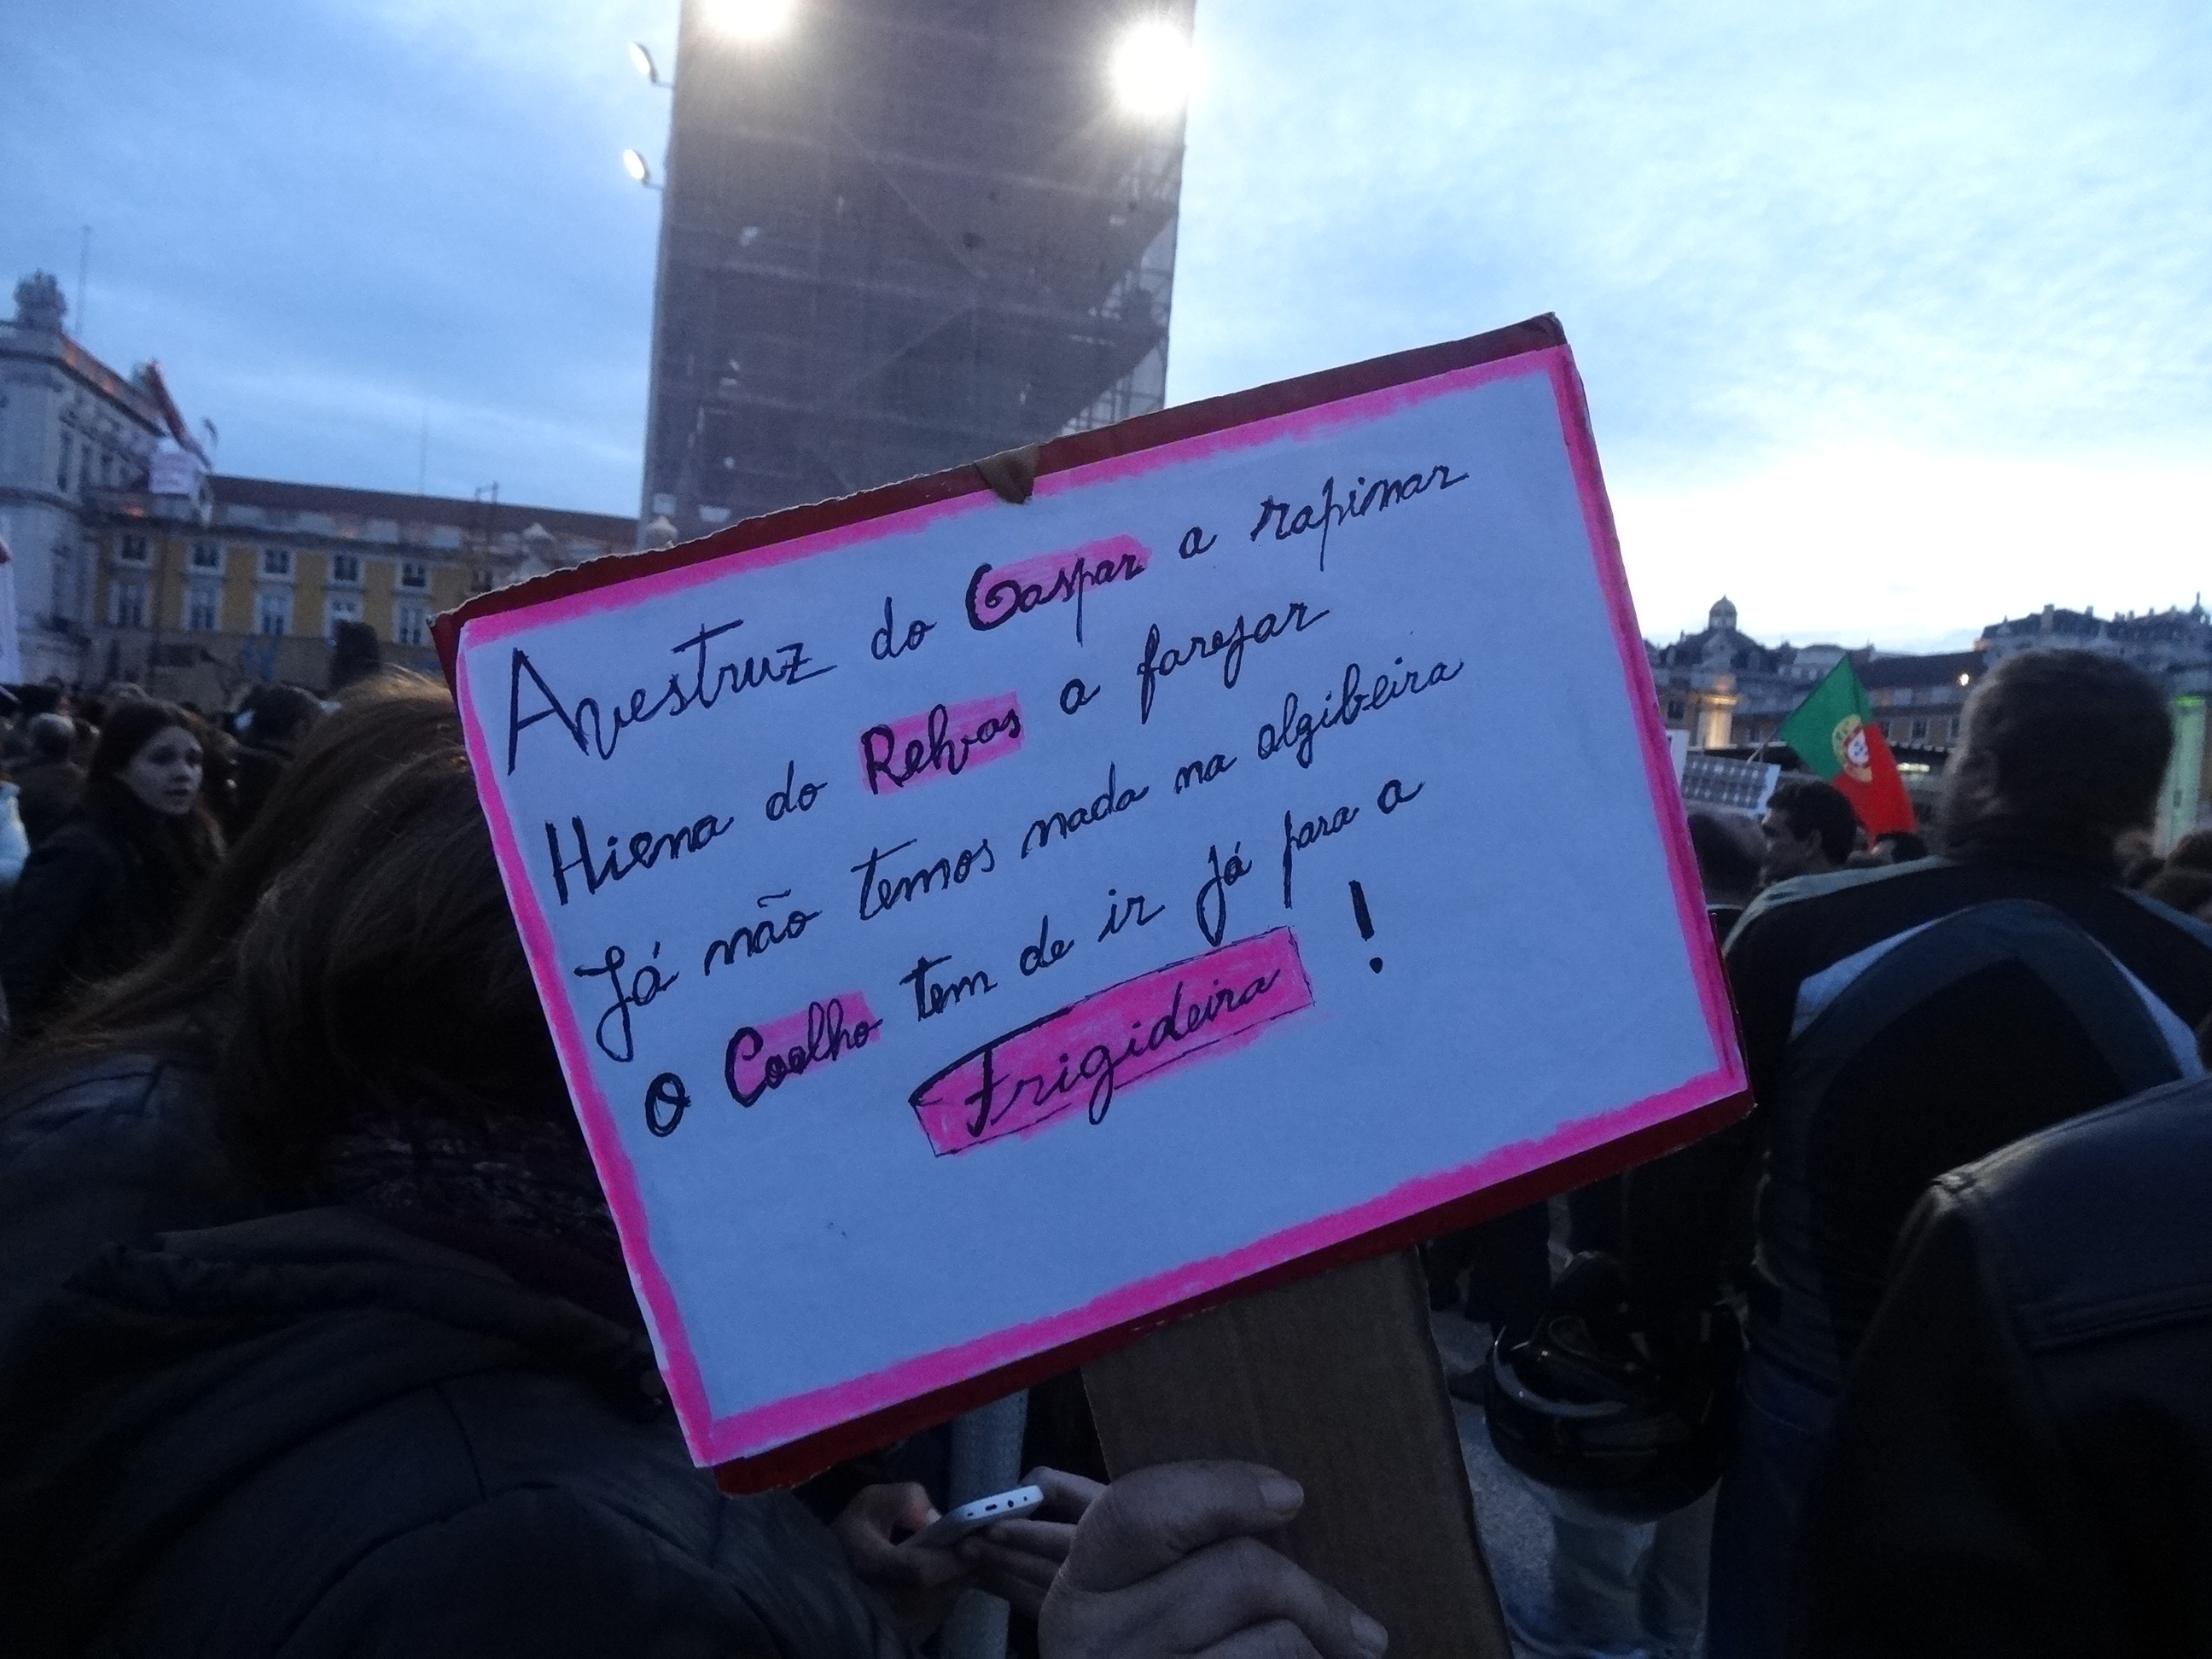 Avestruz do Gaspar a rapinar
Hiena do Relvas a farejar
Já não temos nada na algibeira
O Coelho tem de ir já para a
Frigideira !